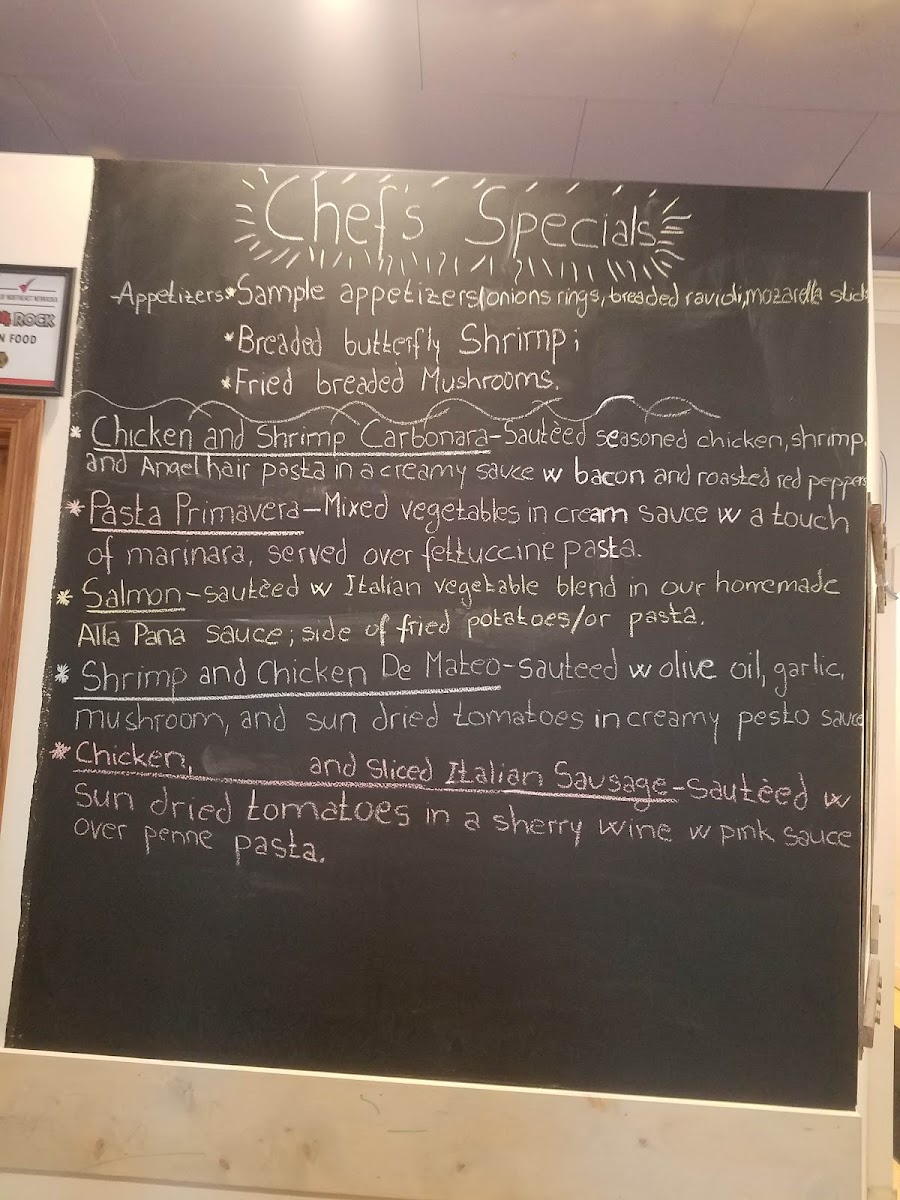 Chef's Specials
Appetizers*Sample appetizers/onions rings, breaded ravioli, mozarella stick
*Breaded butterfly Shrimp;
*Fried breaded Mushrooms.
* Chicken and Shrimp Carbonara-Sautèed seasoned chicken, shrimp,
and Angel hair pasta in a creamy sauce w bacon and roasted red peppers
* Pasta Primavera-Mixed vegetables in cream sauce w a touch
of marinara, served over fettuccine pasta.
* Salmon-sautèed w Italian vegetable blend in our homemade
Alla Pana sauce; side of fried potatoes/or pasta.
* Shrimp and Chicken De Mateo-sauteed w olive oil, garlic,
mushroom, and sun dried tomatoes in creamy pesto sauce
* Chicken, and sliced Italian Sausage-sautèed w
sun dried tomatoes in a sherry wine w pink sauce
over penne pasta.
OF NORTHEAST NEBRASKA
ROCK
N FOOD